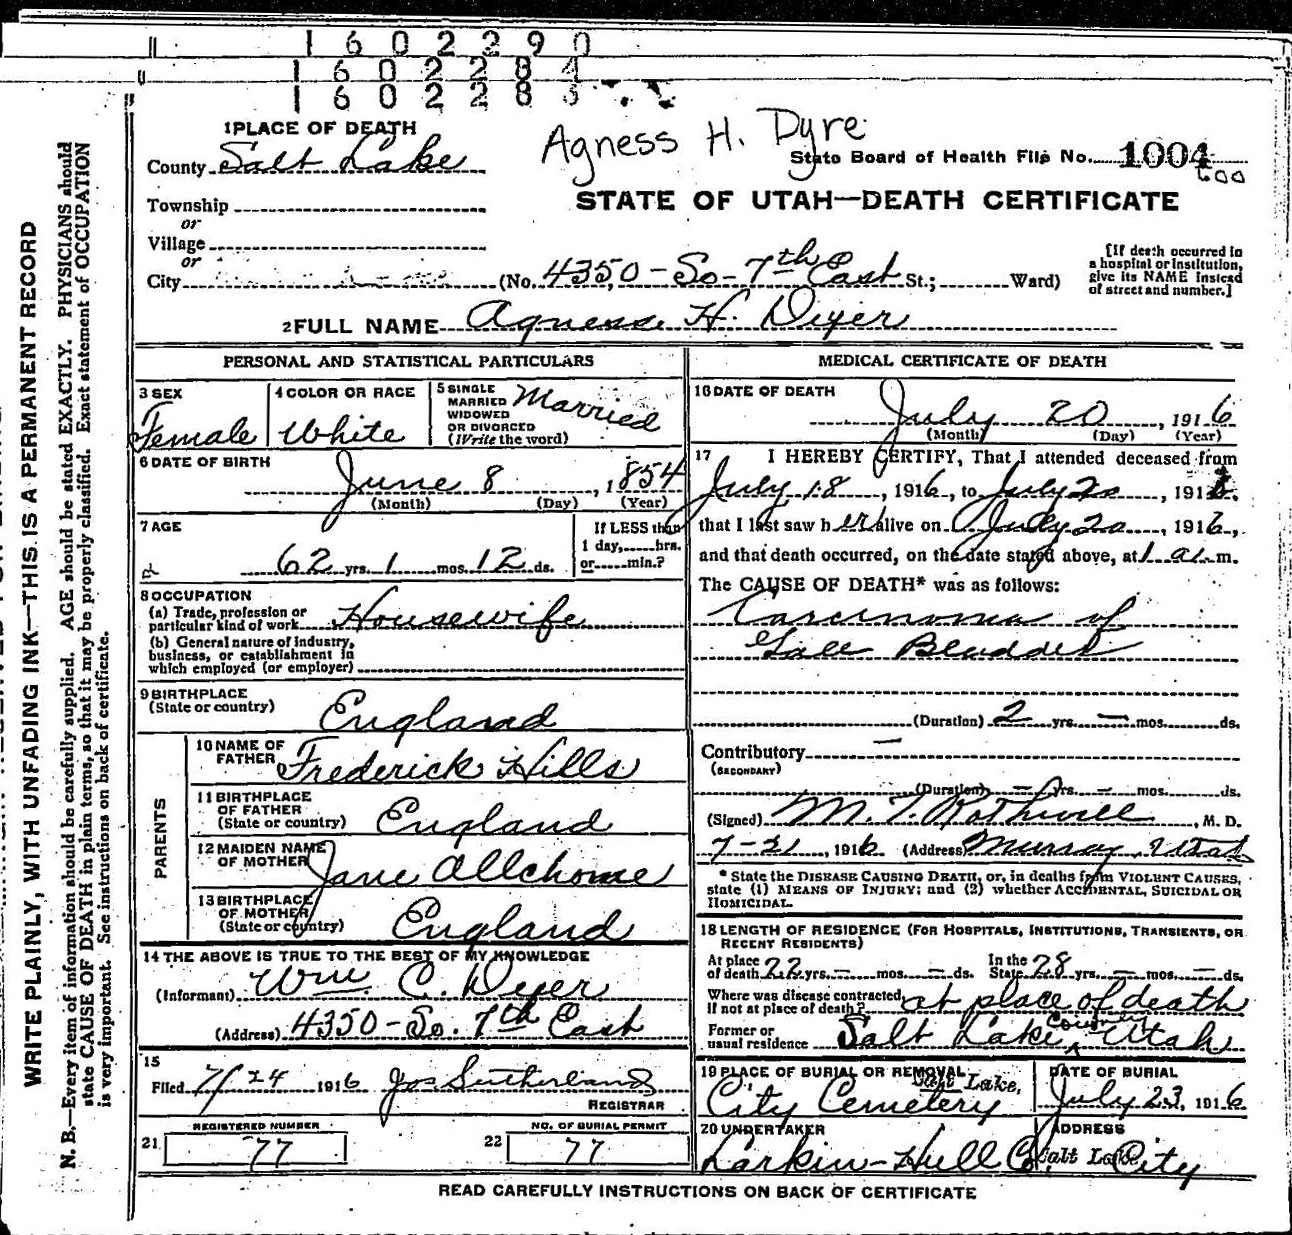 1 6 0 2 2 9 0
1 6 0 2 2 8 4
1 6 0 2 2 8 3
Agness H. Dyre
1 PLACE OF DEATH
County Salt Lake
State Board of Health File No. 1004
600
Township
or
Village
or
City
STATE OF UTAH—DEATH CERTIFICATE
(No. 4350-So-7th East St.; Ward)
[If death occurred in
a hospital or institution,
give its NAME instead
of street and number.]
2 FULL NAME Agness H. Dyer
PERSONAL AND STATISTICAL PARTICULARS
3 SEX
Female
4 COLOR OR RACE
White
5 SINGLE
MARRIED
WIDOWED
OR DIVORCED
(Write the word)
Married
6 DATE OF BIRTH
June 8, 1854
(Month) (Day) (Year)
7 AGE
62 yrs. 1 mos. 12 ds.
If LESS than
1 day,......hrs.
or......min.?
8 OCCUPATION
(a) Trade, profession or
particular kind of work Housewife
(b) General nature of industry,
business, or establishment in
which employed (or employer)
9 BIRTHPLACE
(State or country)
England
PARENTS
10 NAME OF
FATHER Frederick Hills
11 BIRTHPLACE
OF FATHER
(State or country) England
12 MAIDEN NAME
OF MOTHER Jane Allchorne
13 BIRTHPLACE
OF MOTHER
(State or country) England
14 THE ABOVE IS TRUE TO THE BEST OF MY KNOWLEDGE
(Informant) Wm. C. Dyer
(Address) 4350-So. 7th East
15
Filed 7/24 1916 Jos Sutherland
REGISTRAR
21
REGISTERED NUMBER
77
22
NO. OF BURIAL PERMIT
77
MEDICAL CERTIFICATE OF DEATH
16 DATE OF DEATH
July 20, 1916
(Month) (Day) (Year)
17 I HEREBY CERTIFY, That I attended deceased from
July 18, 1916, to July 20, 1916.
that I last saw her alive on July 20, 1916,
and that death occurred, on the date stated above, at 1 a.m.
The CAUSE OF DEATH* was as follows:
Carcinoma of
Gall Bladder
(Duration) 2 yrs. — mos. ds.
Contributory —
(SECONDARY)
(Duration) — yrs. — mos. ds.
(Signed) M. T. Rothwell, M. D.
7-21, 1916 (Address) Murray, Utah
* State the DISEASE CAUSING DEATH, or, in deaths from VIOLENT CAUSES,
state (1) MEANS OF INJURY; and (2) whether ACCIDENTAL, SUICIDAL OR
HOMICIDAL.
18 LENGTH OF RESIDENCE (FOR HOSPITALS, INSTITUTIONS, TRANSIENTS, OR
RECENT RESIDENTS)
At place
of death 22 yrs. — mos. — ds.
In the
State 28 yrs. — mos. — ds.
Where was disease contracted
if not at place of death? at place of death
Former or
usual residence Salt Lake County Utah
19 PLACE OF BURIAL OR REMOVAL
Salt Lake,
City Cemetery
DATE OF BURIAL
July 23, 1916
20 UNDERTAKER
Larkin-Hull Co.
ADDRESS
Salt Lake City
READ CAREFULLY INSTRUCTIONS ON BACK OF CERTIFICATE
WRITE PLAINLY, WITH UNFADING INK—THIS IS A PERMANENT RECORD
N. B.—Every item of information should be carefully supplied. AGE should be stated EXACTLY. PHYSICIANS should
state CAUSE OF DEATH in plain terms, so that it may be properly classified. Exact statement of OCCUPATION
is very important. See instructions on back of certificate.